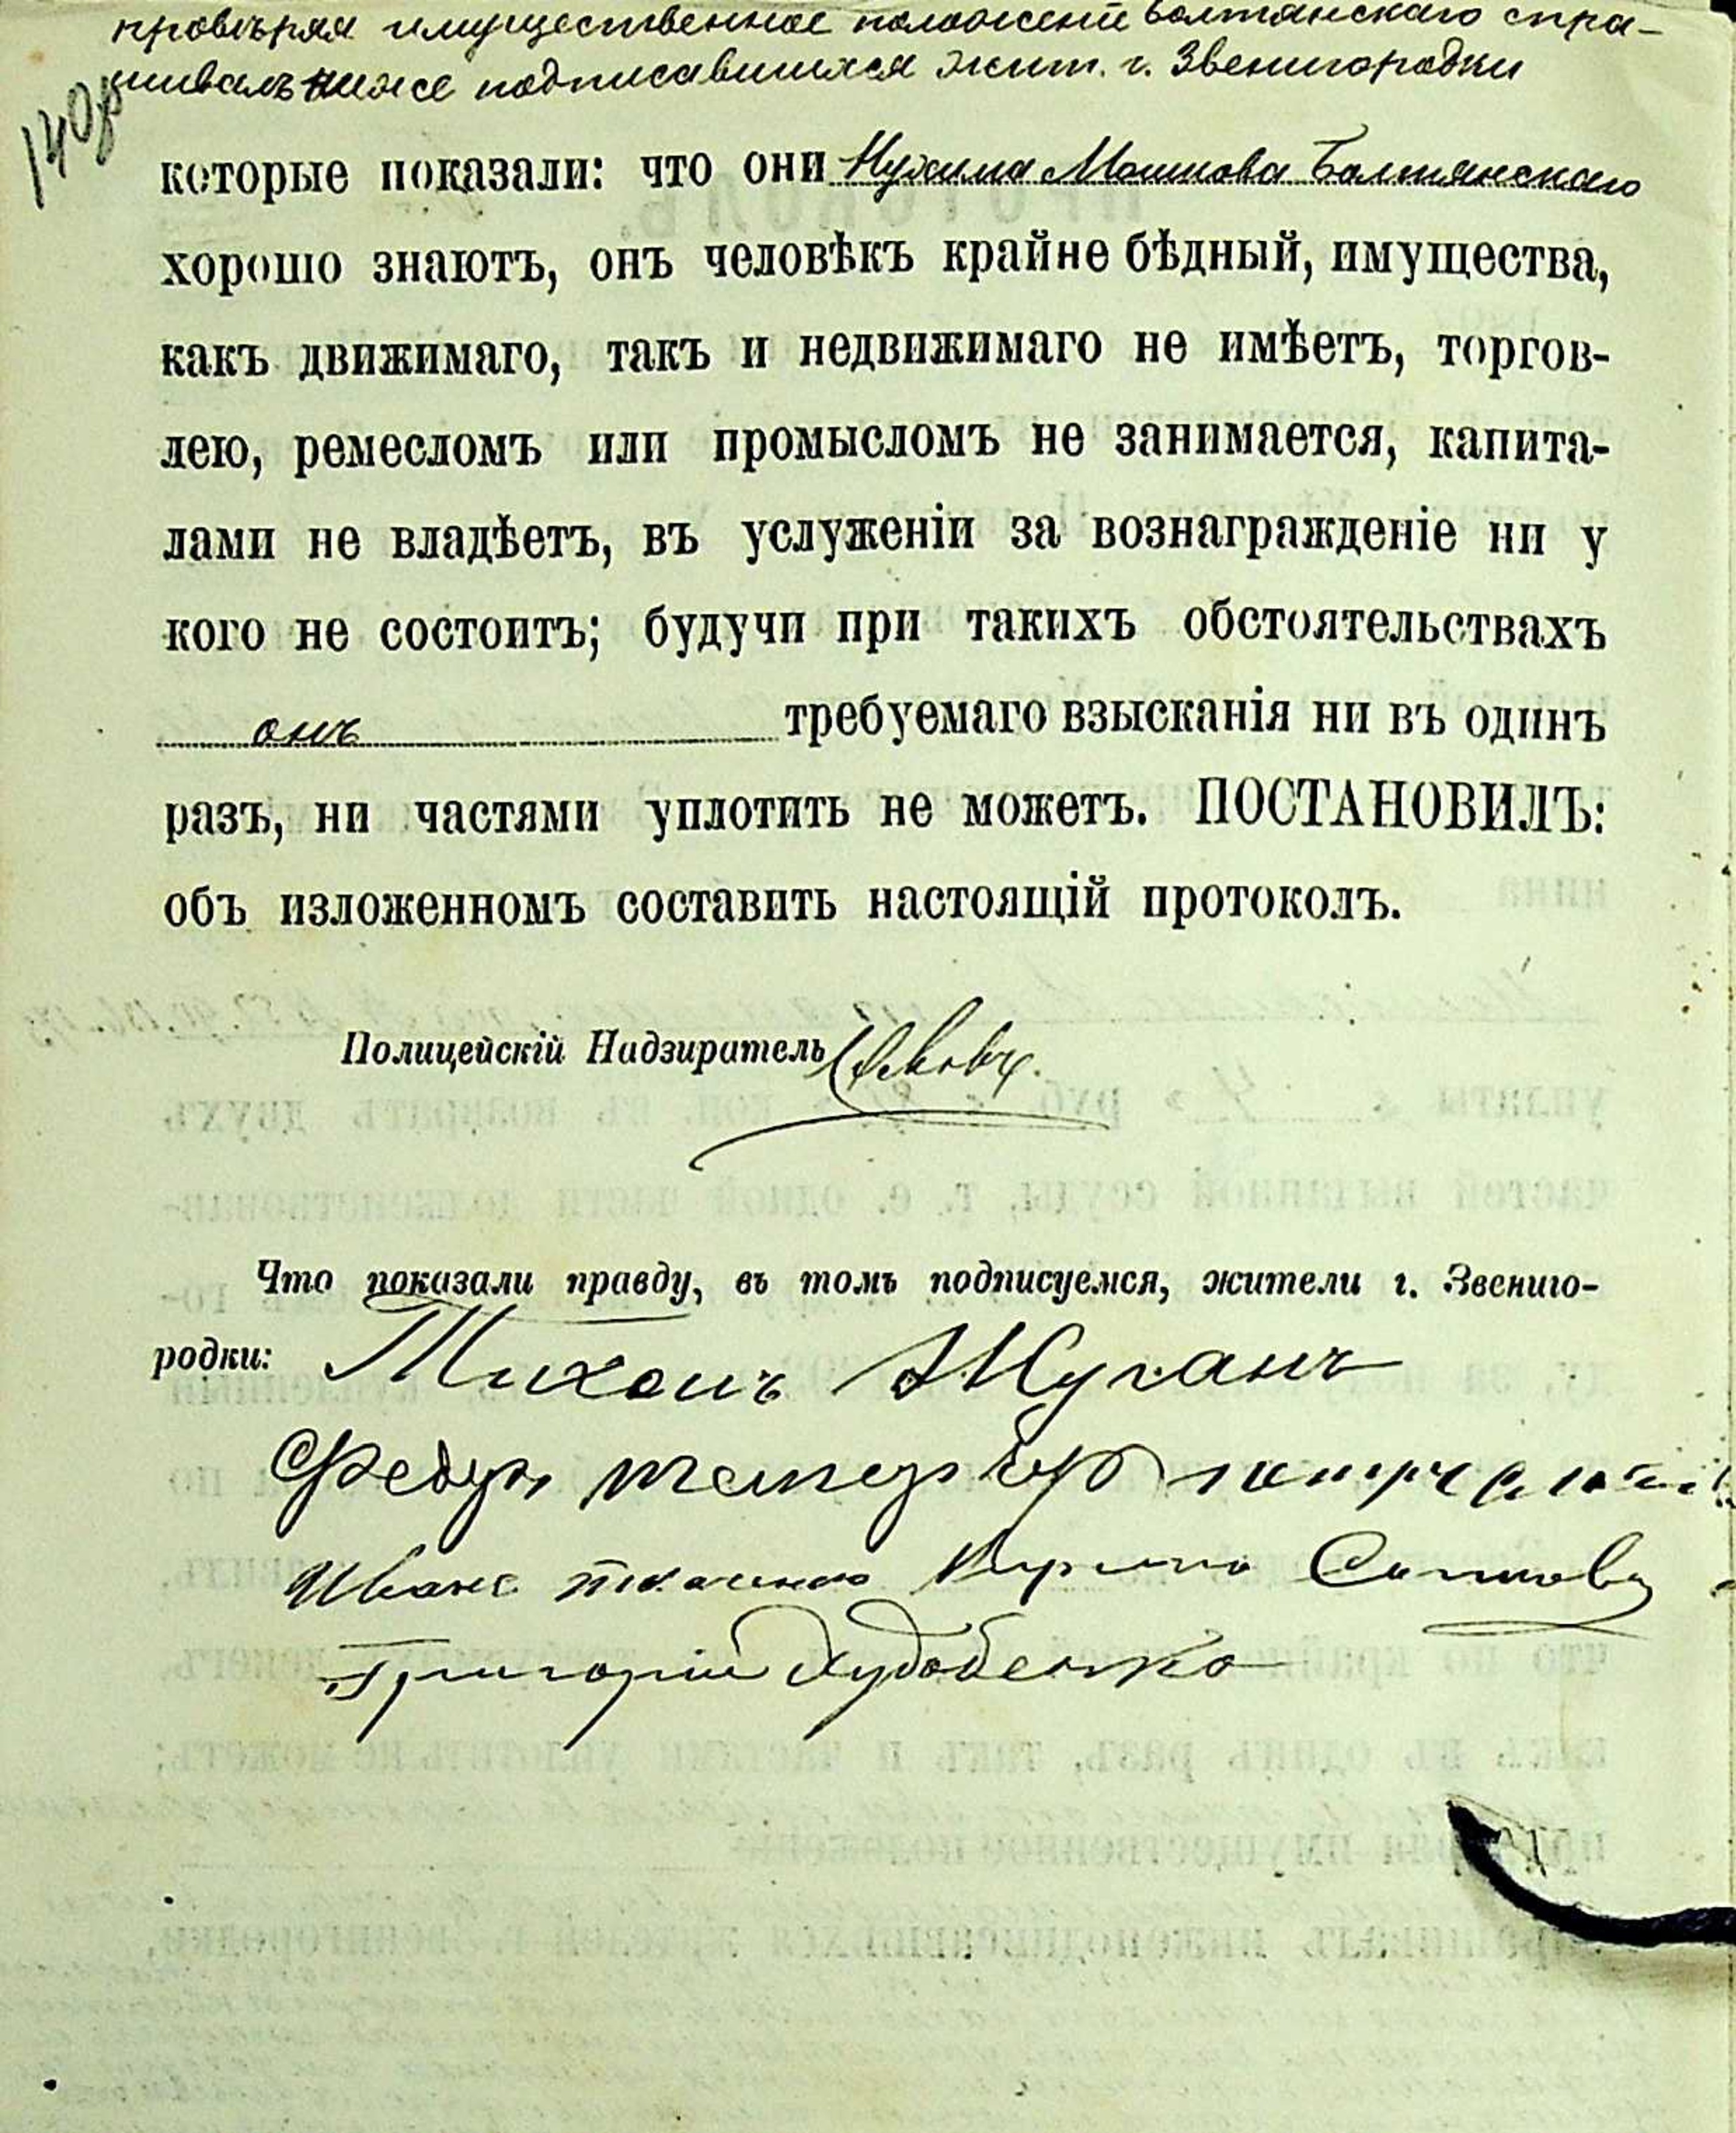 провѣряя имущественное положеніе Болтянскаго спра-
шивалъ ниже подписавшихся жит. г. Звенигородки
140об
которые показали: что они Нухима Мошкова Болтянскаго
хорошо знаютъ, онъ человѣкъ крайне бѣдный, имущества,
какъ движимаго, такъ и недвижимаго не имѣетъ, торгов-
лею, ремесломъ или промысломъ не занимается, капита-
лами не владѣетъ, въ услуженіи за вознагражденіе ни у
кого не состоитъ; будучи при такихъ обстоятельствахъ
онъ требуемаго взысканія ни въ одинъ
разъ, ни частями уплотить не можетъ. ПОСТАНОВИЛЪ:
объ изложенномъ составить настоящій протоколъ.
Полицейскій Надзиратель
Что показали правду, въ томъ подписуемся, жители г. Звениго-
родки: Тихонъ Жуганъ
Федоръ
Иванъ Ткаченко Кирило
Григорій Худобенко